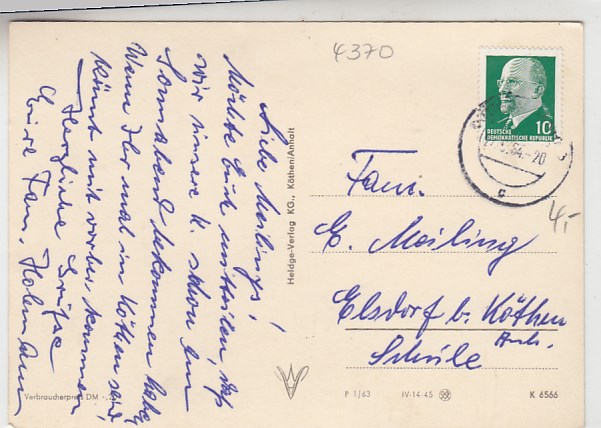 4370
Liebe Meilings!
Möchte Euch mitteilen, daß
wir unsere K. schon am
Sonnabend bekommen habe,
Wenn Ihr mal in Köthen seid,
könnt mit vorbei kommen
Herzliche Grüße
Eure Fam. Holmann
Heldge-Verlag KG., Köthen/Anhalt
10
DEUTSCHE
DEMOKRATISCHE REPUBLIK
64.-20
c
4,-
Fam.
E. Meiling
Elsdorf b. Köthen
Anh.
Schule
Verbraucherpreis DM
P 1/63
IV-14-45
K 6566